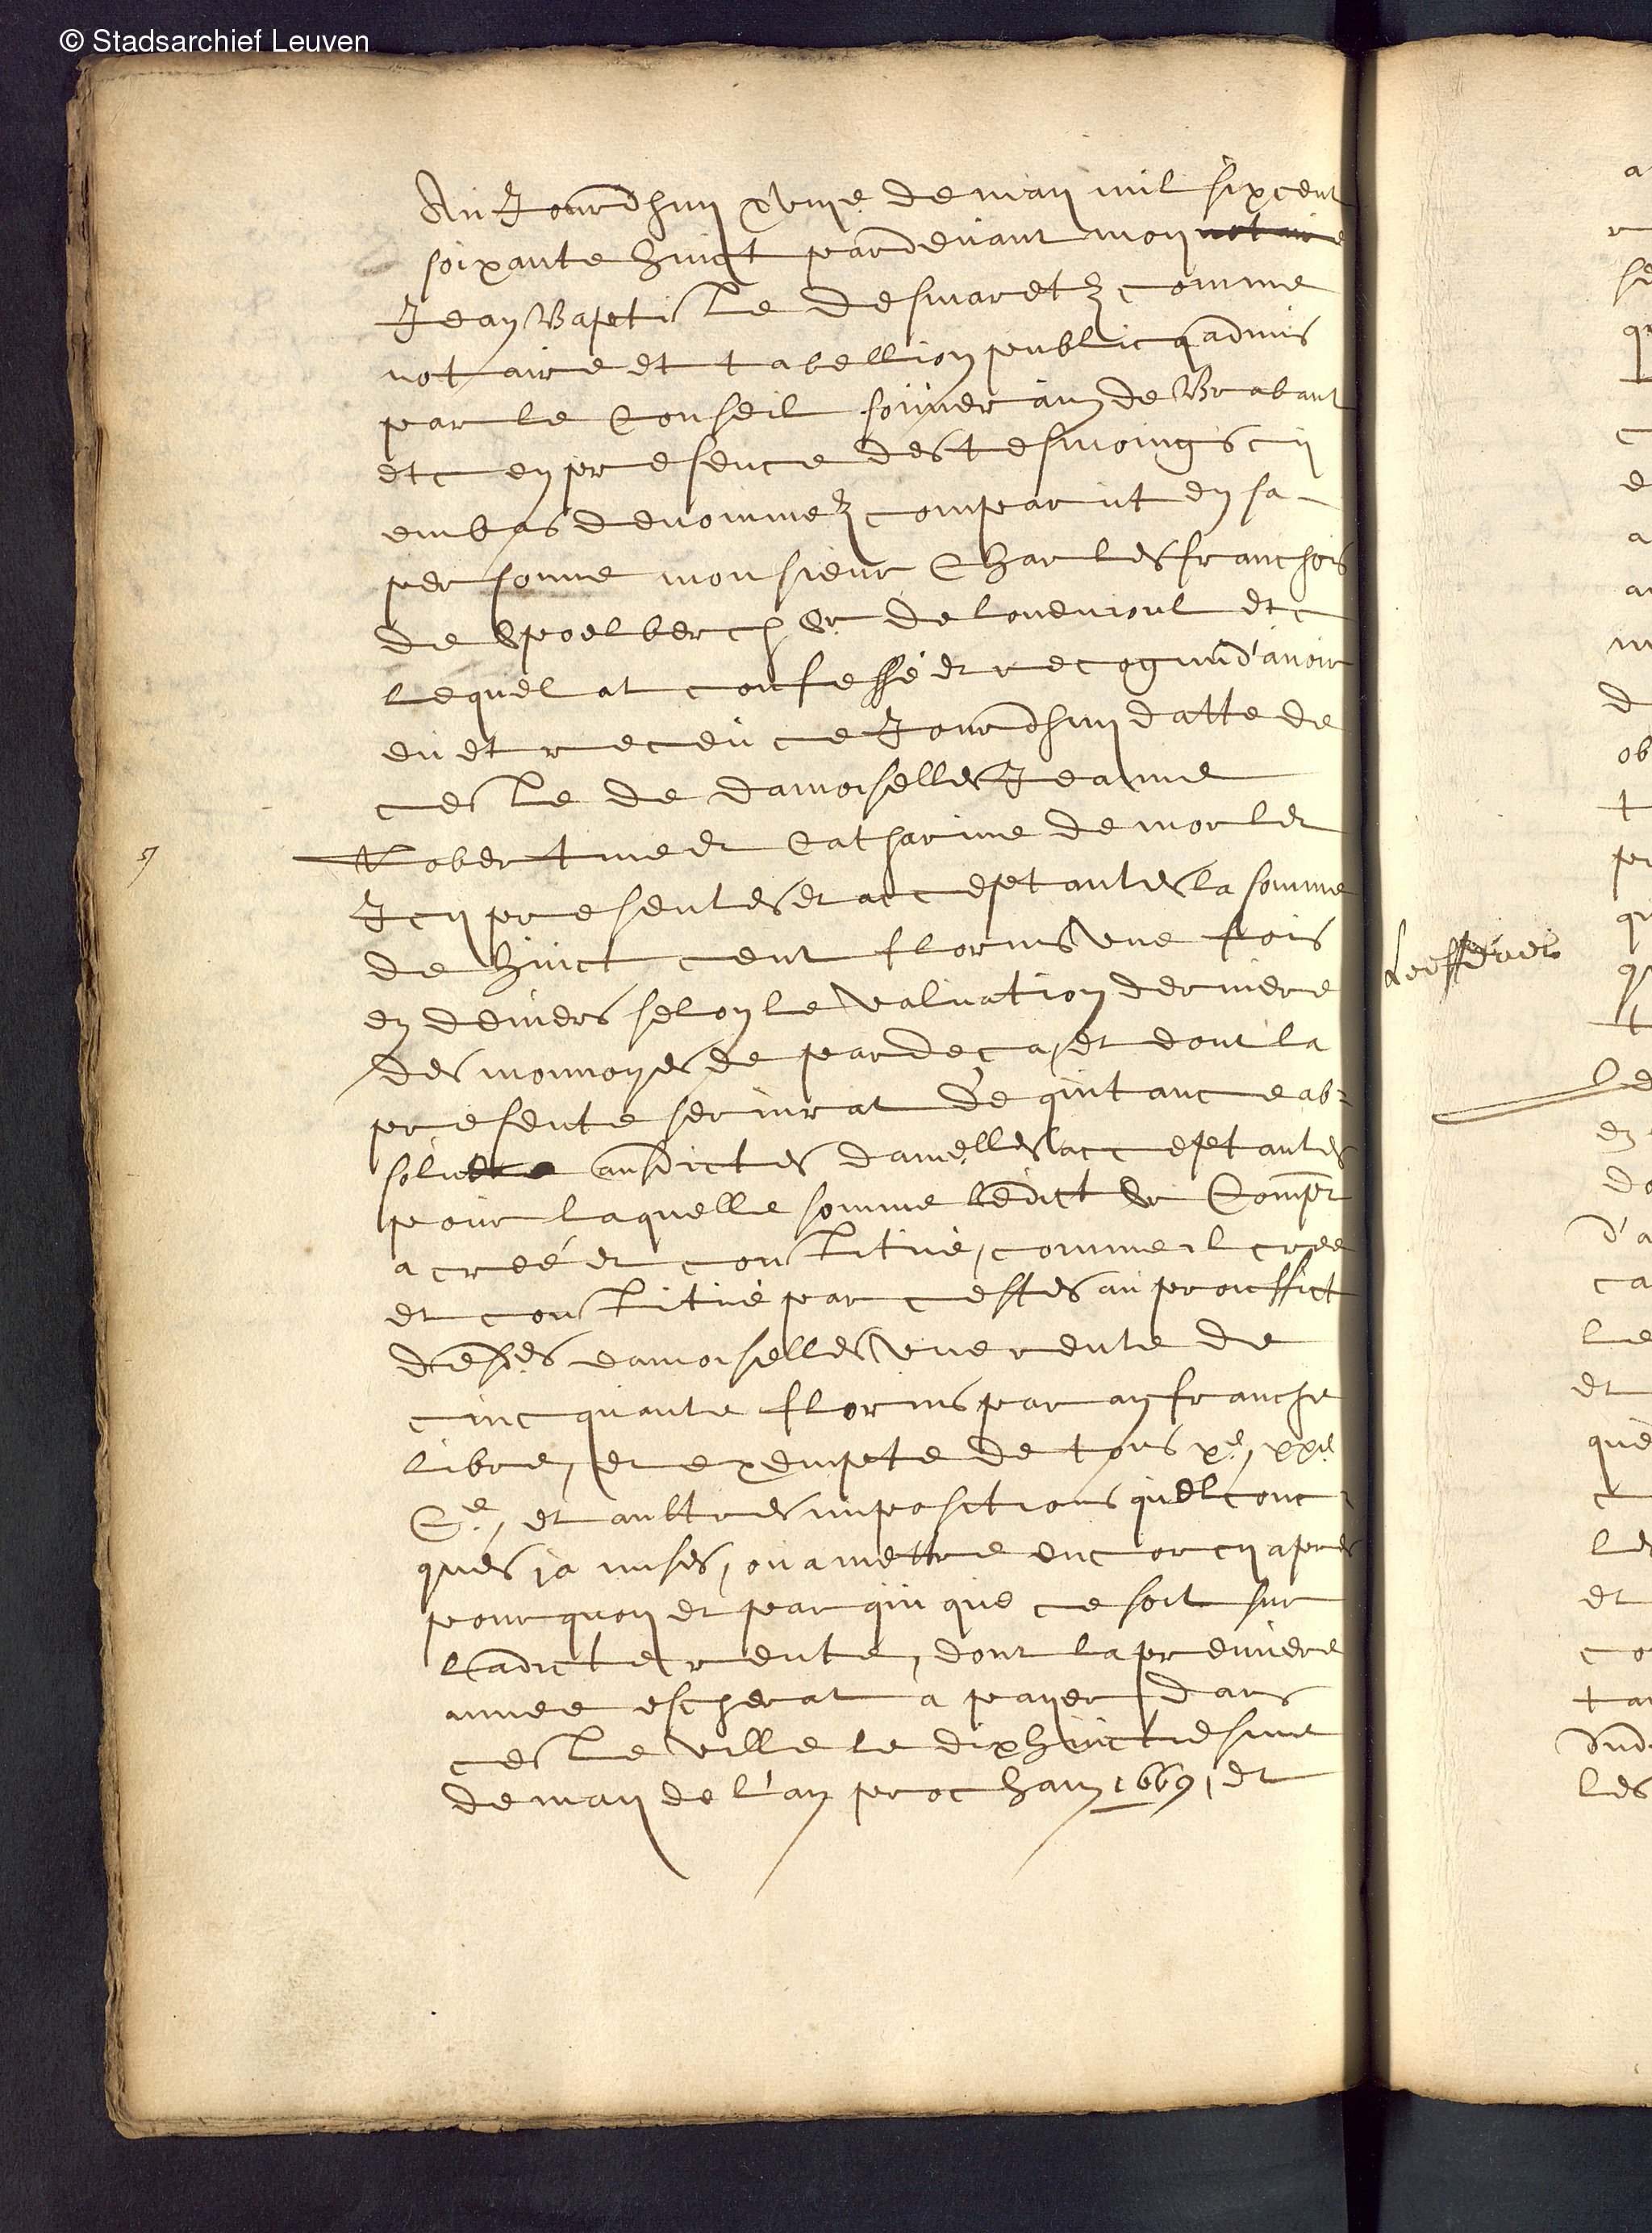 © Stadsarchief Leuven
Au Jourdhuy xviije de may mil sixcent
soixante huict pardevant moy notaire
Jean Baptiste desmaretz comme
notaire et tabellion publicq admis
par le Conseil souverain de Brabant
etc en presence des tesmoings cy
embas denommez comparut en sa
personne monsieur Charles franchois
de Spoelberch Sr de lovenioul etc
lequel at confessé et recognu d'avoir
eu et receu ce Jourdhuy datte de
ceste de damoiselles Jeanne
Robertine et Catharine de morlet
Icy presentes et acceptantes la somme
de huict cent florins une fois
en deniers selon le valuation derniere
des monnoyes de pardeca, et dont la
presente servirat de quitance ab-
solute ausdictes damelles acceptantes
pour laquelle somme ledict Sr Compt
a creé et constitué, comme il cree
et constitue par cestes au prouffict
desdes damoiselles une rente de
cincquante florins par an franche
libre, et exempte de tous xe, xxe
Ce, et aultres impositions quelconc-
ques ja mises, ou a mettre encor cy apres
pourquoy et par qui que ce soit sur
ladicte rente, dont la premiere
annee escherat a payer dans
ceste ville le dixhuictiesme
de may de l'an prochain 1669, et